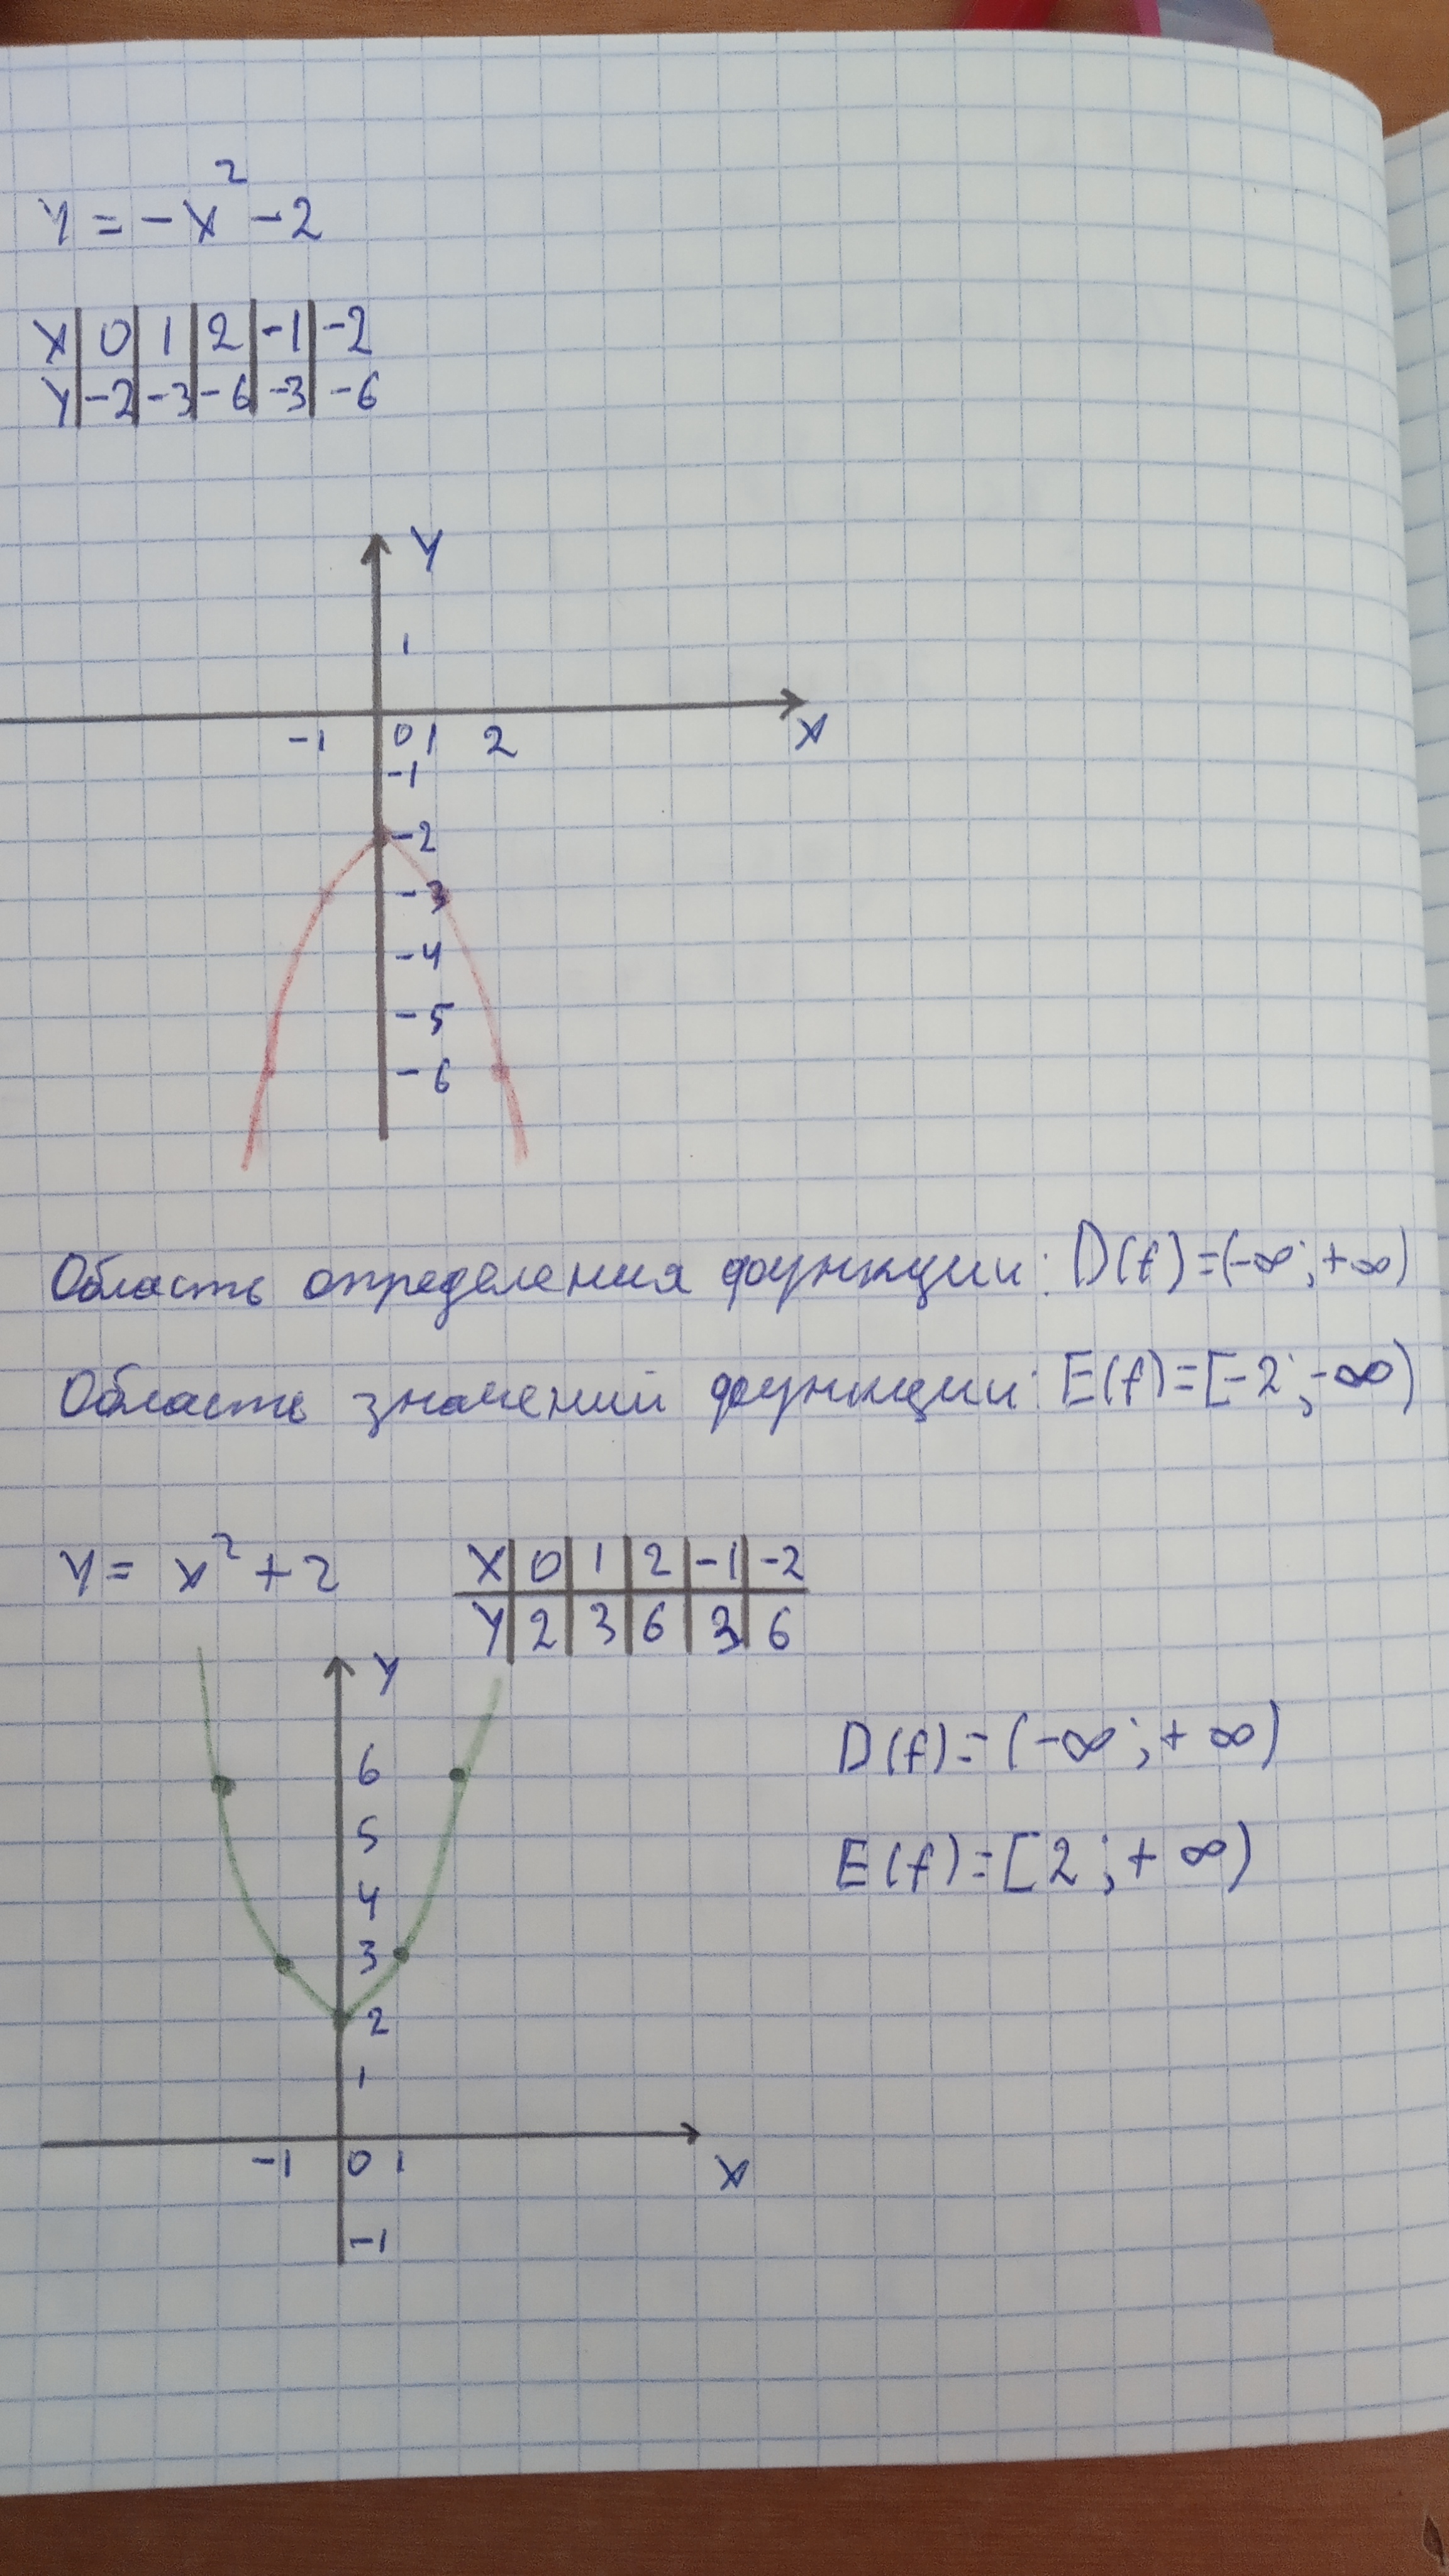 y = -x² - 2
x | 0 | 1 | 2 | -1 | -2
y | -2 | -3 | -6 | -3 | -6
y
1
-1 0 1 2 x
-1
-2
-3
-4
-5
-6
Область определения функции: D(f)=(-∞;+∞)
Область значений функции: E(f)=[-2;-∞)
y = x² + 2
x | 0 | 1 | 2 | -1 | -2
y | 2 | 3 | 6 | 3 | 6
y
D(f)=(-∞;+∞)
6
5
E(f)=[2;+∞)
4
3
2
1
-1 0 1 x
-1